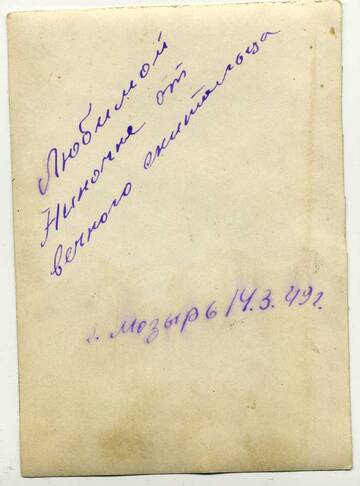 Любимой
Ниночке от
вечного скитальца
г. Мозырь 14.3.49г.